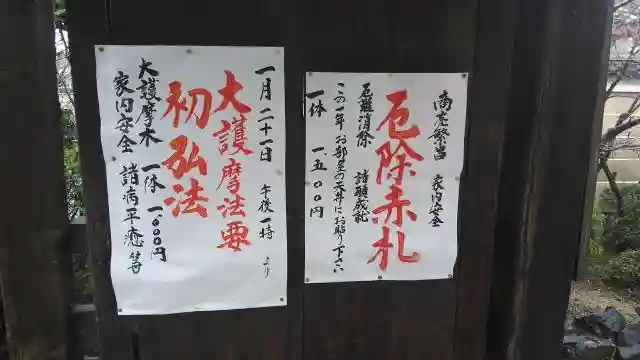 商売繁昌 家内安全
厄除赤札
厄難消除 諸願成就
この一年お部屋の天井にお貼り下さい
一体 一、五〇〇円
一月二十一日 午後一時より
大護摩法要
初弘法
大護摩木 一体 一、〇〇〇円
家内安全 諸病平癒等